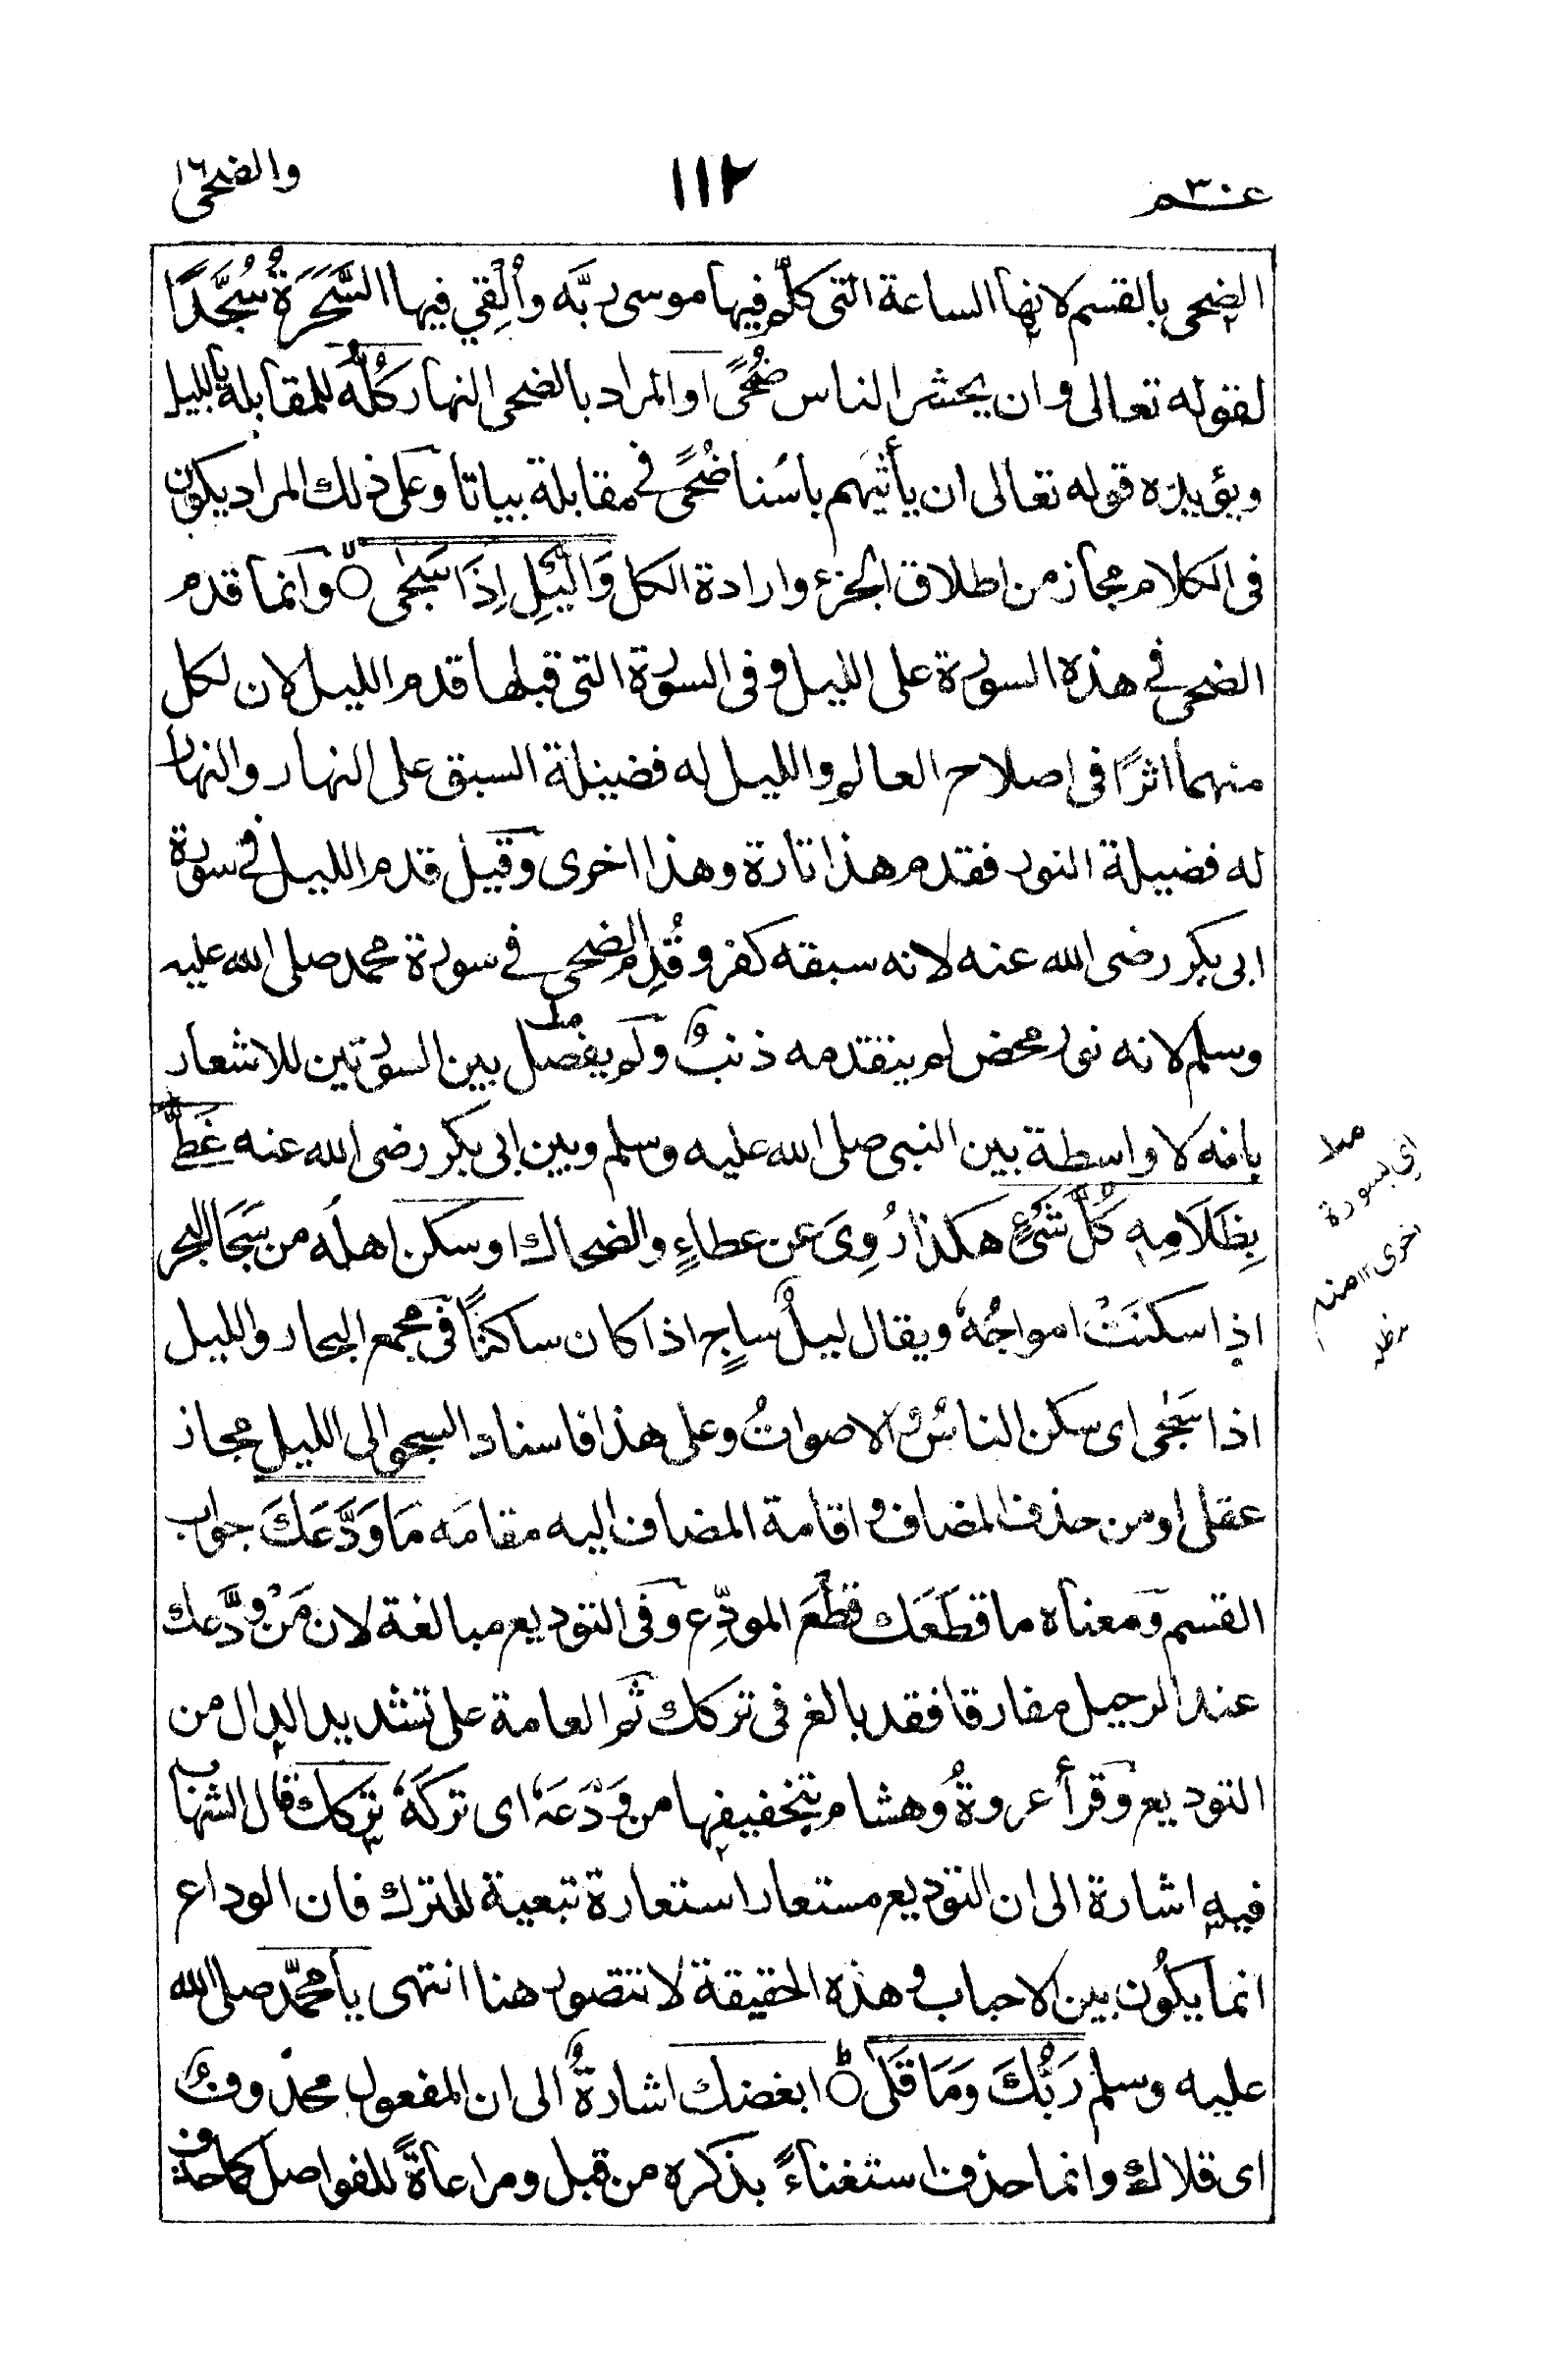 عم ٣٠
١١٢
والضحى
الضحى بالقسم لانها الساعة التى كلّم فيها موسى ربَّه واُلْقِي فيها السَّحَرَةُ سُجَّدًا
لقوله تعالى وان يحشر الناس ضُحًى او المراد بالضحى النهار كُلُّه للمقابلة بالليل
ويؤيده قوله تعالى ان يأتيهم باسُنا ضُحًى فى مقابلة بياتا وعلى ذلك المراد يكون
فى الكلام مجاز من اطلاق الجزء وارادة الكل وَالَّيْلِ اِذَا سَجٰى وانما قدم
الضحى فى هذه السورة على الليل وفى السورة التى قبلها قدم الليل لان لكل
منهما اثرًا فى اصلاح العالم والليل له فضيلة السبق على النهار والنهار
له فضيلة النور فقدم هذا تارة وهذا اخرى وقيل قدم الليل فى سورة
ابى بكر رضى الله عنه لانه سبقه كفر وقُدِم الضحى فى سورة محمد صلى الله عليه
وسلم لانه نور محض لم يتقدمه ذنبٌ ولم يفصل بين السورتين للاشعار
بانه لا واسطة بين النبى صلى الله عليه وسلم وبين ابى بكر رضى الله عنه غَطّٰى
بِظَلَامِهٖ كُلَّ شَیْءٍ هكذا رُوِىَ عن عطاءٍ والضحاك او سكن اهلُه من سَجَا البحر
اذا سكنَتْ امواجُهٗ ويقال ليلٌ ساجٍ اذا كان ساكنًا فى مجمع البحار والليل
اذا سَجٰى اى سكن الناسُ والاصواتُ وعلى هذا فاسناد السجو الى الليل مجاز
عقلى او من حذف المضاف واقامة المضاف اليه مقامَه مَا وَدَّعَكَ جواب
القسم ومعناه ما قطَعَك قطْعَ المودِّع وفى التوديع مبالغة لان مَنْ ودَّعك
عند الرحيل مفارقا فقد بالغ فى تركك ثم العامة على تشديد الدال من
التوديع وقرأ عروةُ وهشام بتخفيفها من وَدَعَهٗ اى تركَهٗ تركك قال الشهاب
فيه اشارة الى ان التوديع مستعار استعارة تبعية للترك فان الوداع
انما يكُون بين الاحباب وهذه الحقيقة لا تتصور هنا انتهى يا محمّد صلى الله
عليه وسلم رَبُّكَ وَمَا قَلٰى ابغضك اشارةٌ الى ان المفعول محذوفٌ
اى قلاكَ وانما حذف استغناءً بذكره من قبل ومراعاةً للفواصل كما حذف
اي بسورة
اخرى ١٢ منه